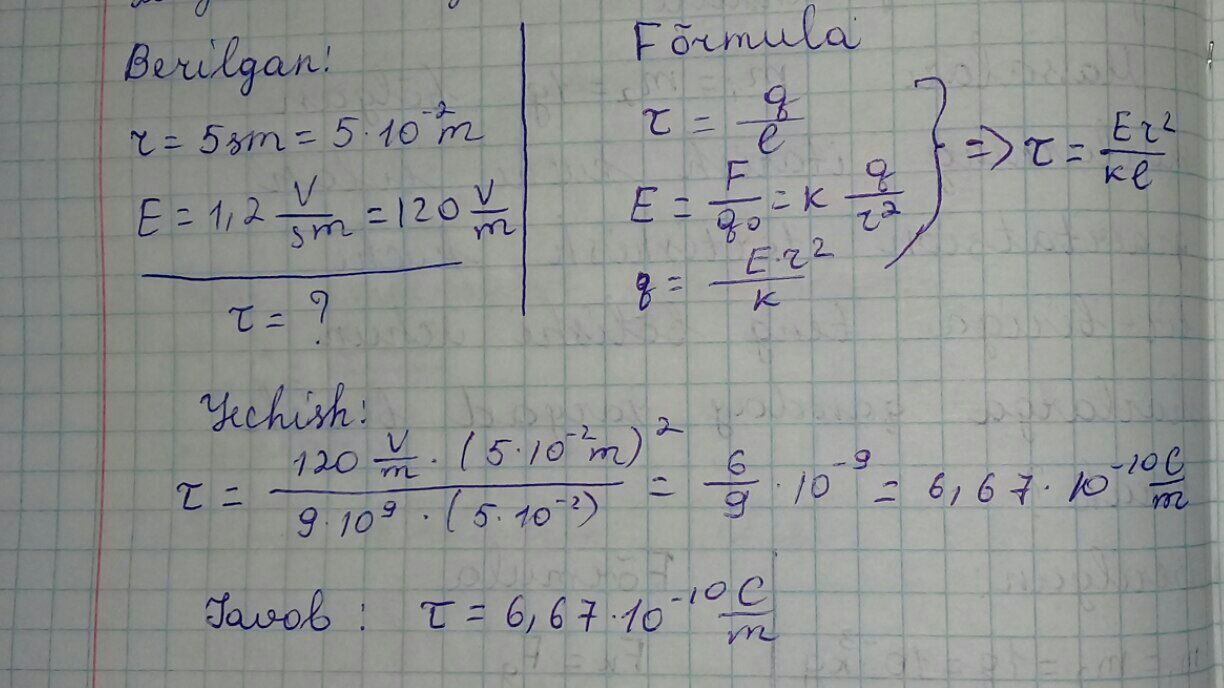 Berilgan:
r = 5sm = 5·10⁻²m
E = 1,2 V/sm = 120 V/m
τ = ?
Fōrmula
τ = q/l
E = F/q₀ = k q/r²
q = E·r²/k
} => τ = Er²/kl
Yechish:
τ = 120 V/m · (5·10⁻²m)² / 9·10⁹ · (5·10⁻²) = 6/9 · 10⁻⁹ = 6,67·10⁻¹⁰ C/m
Javob: τ = 6,67·10⁻¹⁰ C/m